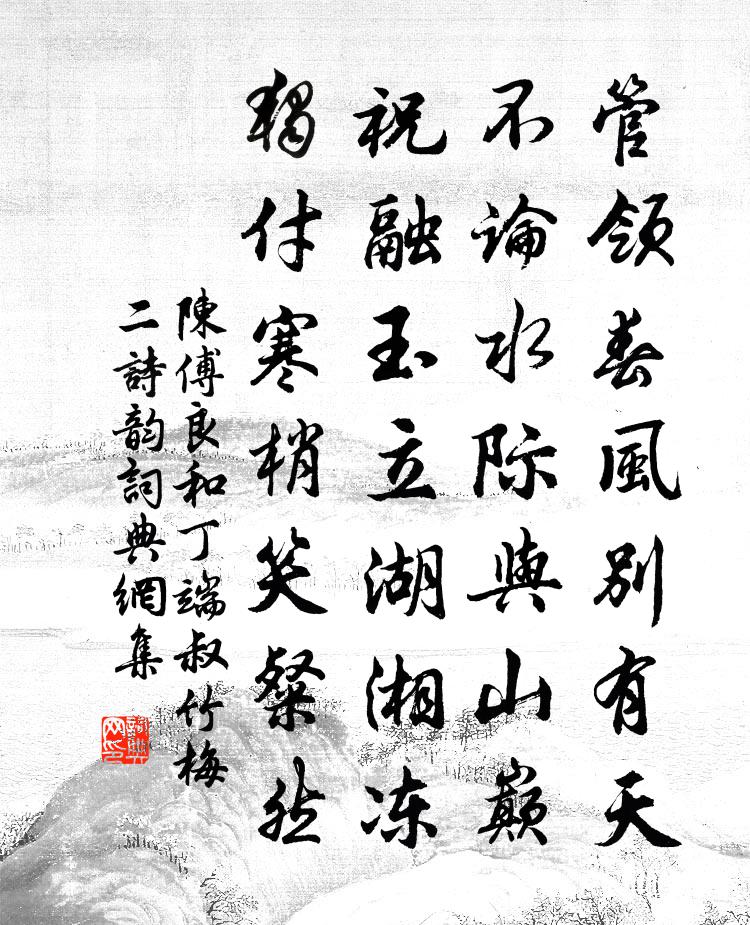 管領春風別有天
不論水际與山巔
祝融玉立湖湘冻
獨付寒梢笑粲然
陳傅良和丁端叔竹梅
二詩韵詞典網集